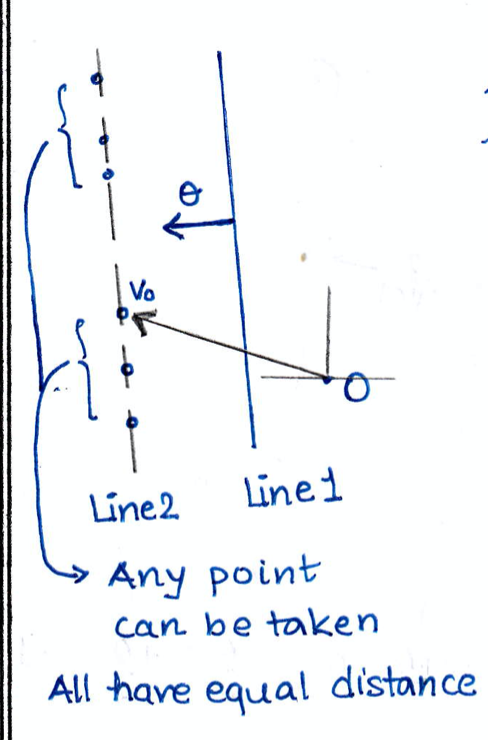 θ
V₀
O
Line2
Line1
Any point
can be taken
All have equal distance